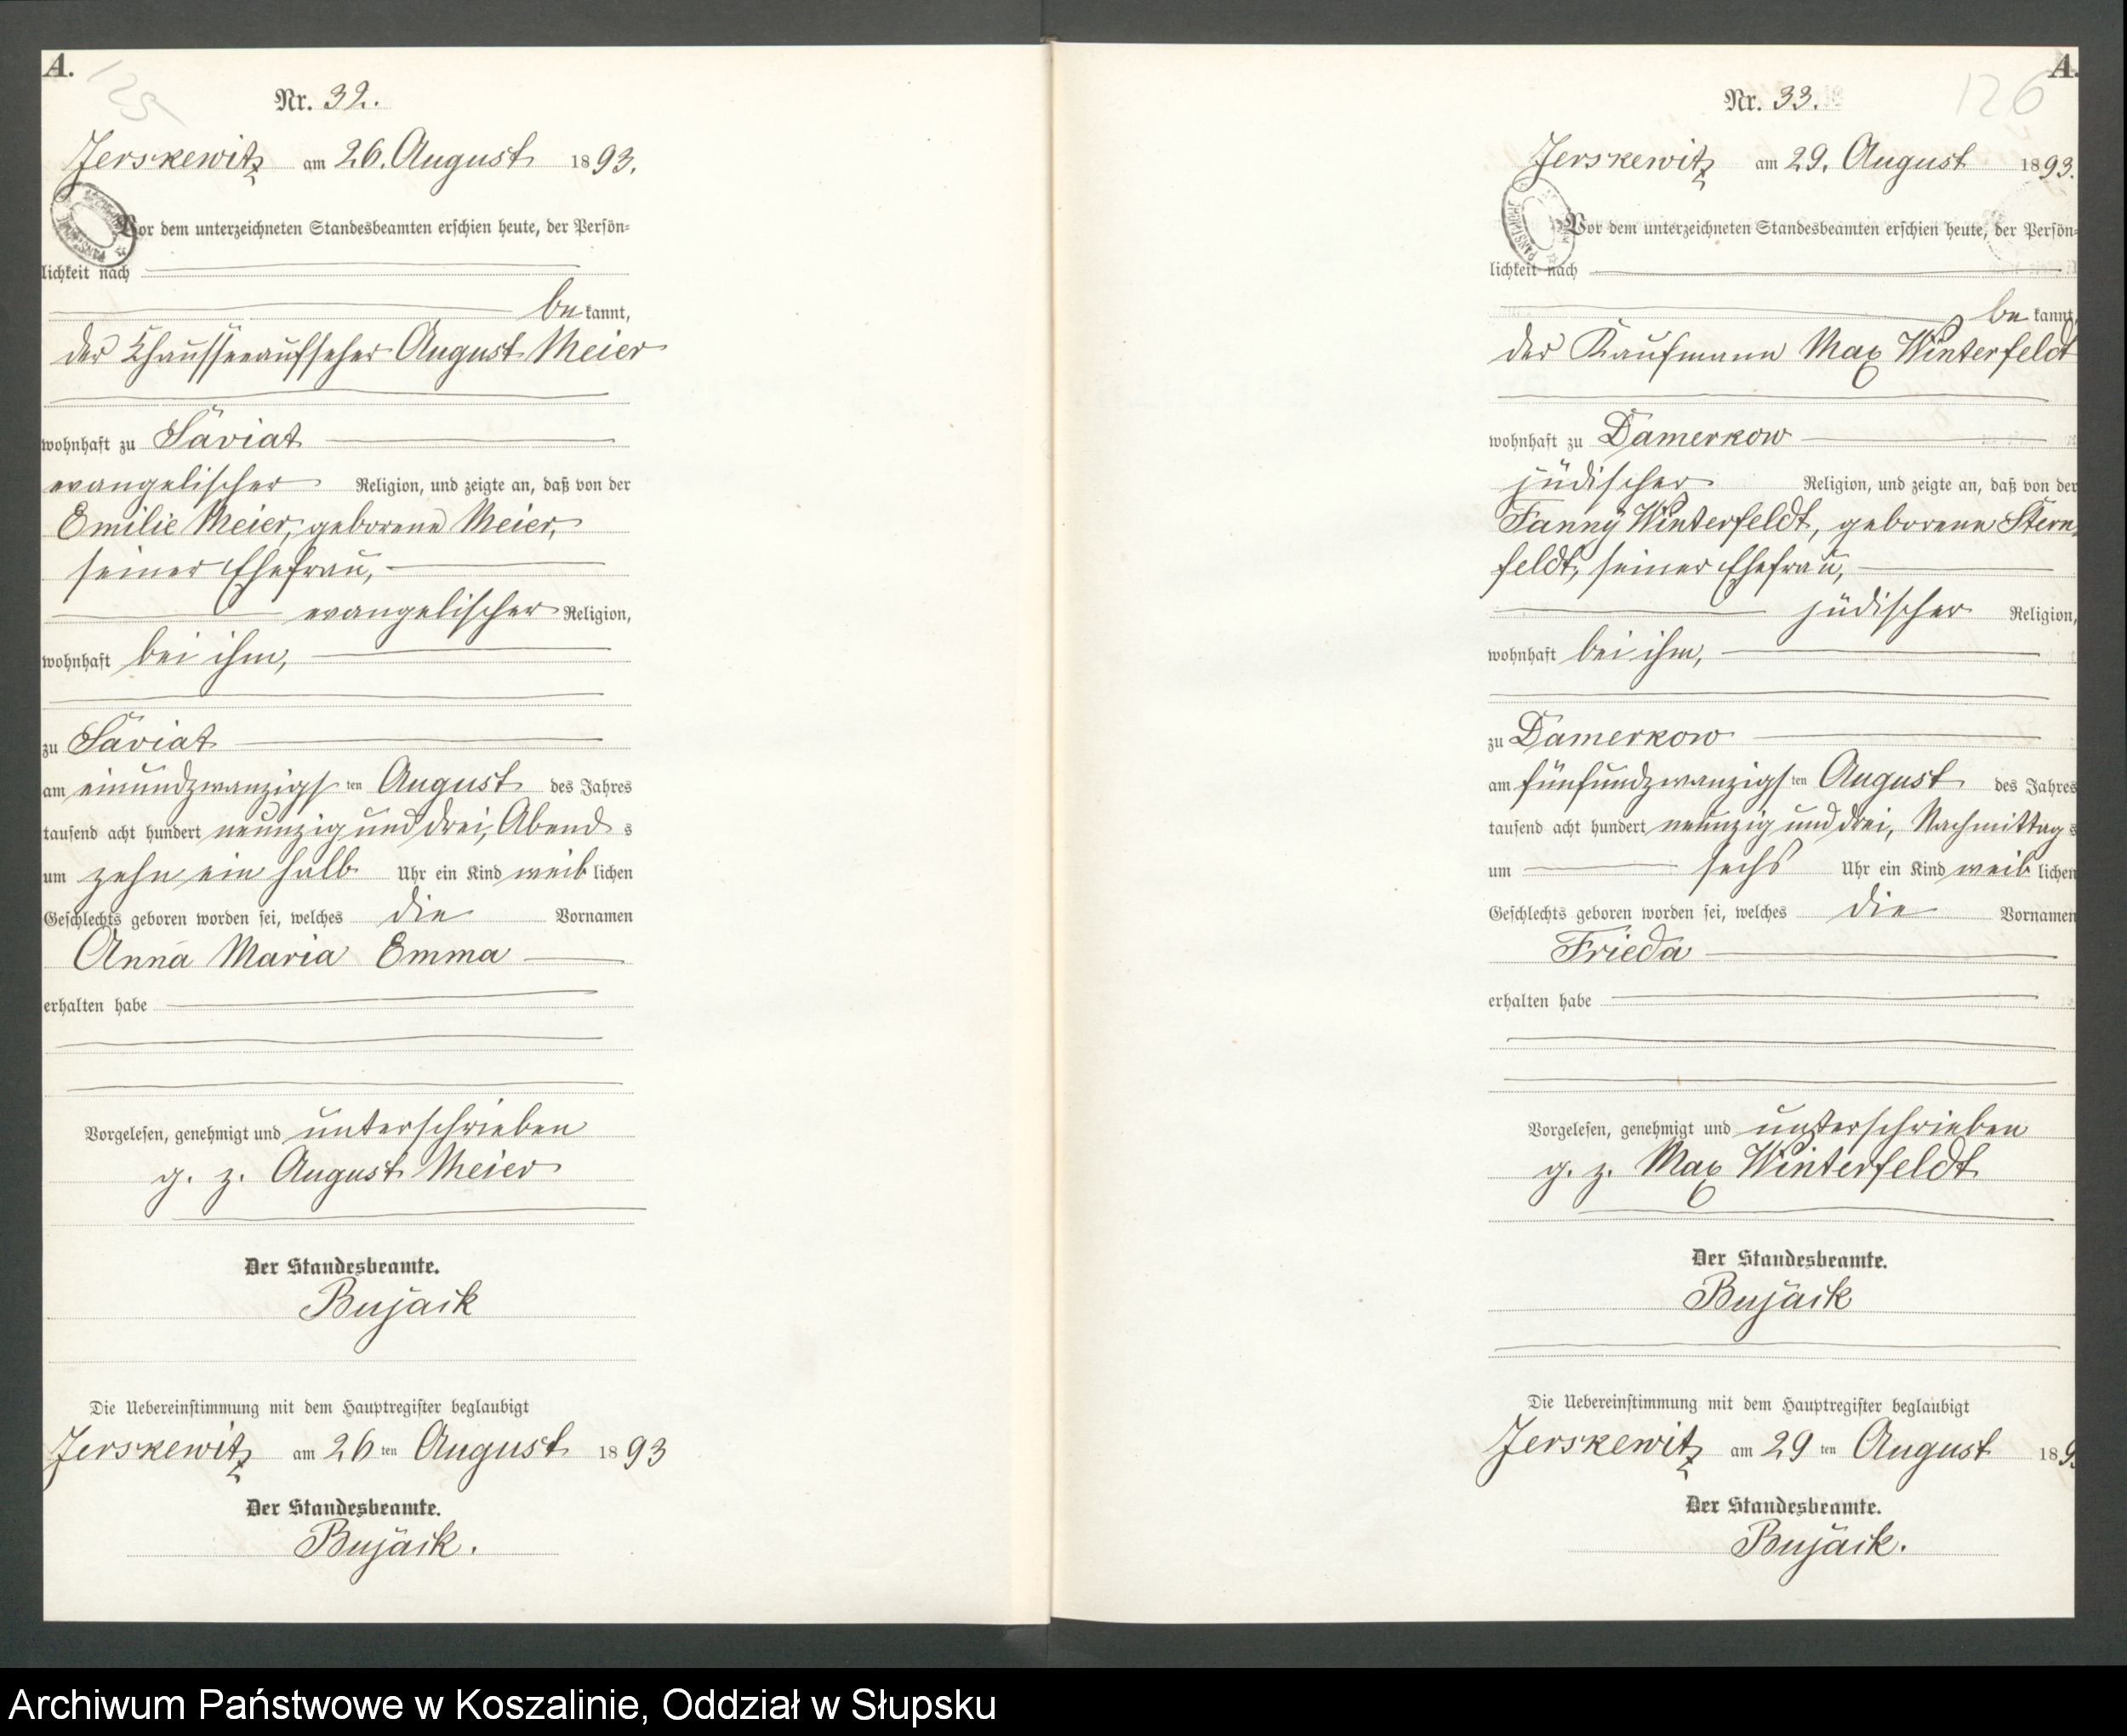 A.
125
Nr. 32.
Jerskewitz am 26. August 1893.
Vor dem unterzeichneten Standesbeamten erschien heute, der Persön=
lichkeit nach
be kannt,
der Chausseeaufseher August Meier
wohnhaft zu Saviat
evangelischer Religion, und zeigte an, daß von der
Emilie Meier, geborene Meier,
seiner Ehefrau,
evangelischer Religion,
wohnhaft bei ihm,
zu Saviat
am einundzwanzigst ten August des Jahres
tausend acht hundert neunzig und drei, Abend s
um zehn ein halb Uhr ein Kind weib lichen
Geschlechts geboren worden sei, welches die Vornamen
Anna Maria Emma
erhalten habe
Vorgelesen, genehmigt und unterschrieben
g. z. August Meier
Der Standesbeamte.
Bujack
Die Uebereinstimmung mit dem Hauptregister beglaubigt
Jerskewitz am 26 ten August 1893
Der Standesbeamte.
Bujack.
A.
126
Nr. 33.
Jerskewitz am 29. August 1893.
Vor dem unterzeichneten Standesbeamten erschien heute, der Persön=
lichkeit nach
be kannt,
der Kaufmann Max Winterfeldt
wohnhaft zu Damerkow
jüdischer Religion, und zeigte an, daß von der
Fanny Winterfeldt, geborene Stern=
feldt, seiner Ehefrau,
jüdischer Religion,
wohnhaft bei ihm,
zu Damerkow
am fünfundzwanzigst ten August des Jahres
tausend acht hundert neunzig und drei, Nachmittag s
um sechs Uhr ein Kind weib lichen
Geschlechts geboren worden sei, welches die Vornamen
Frieda
erhalten habe
Vorgelesen, genehmigt und unterschrieben
g. z. Max Winterfeldt
Der Standesbeamte.
Bujack
Die Uebereinstimmung mit dem Hauptregister beglaubigt
Jerskewitz am 29 ten August 189
Der Standesbeamte.
Bujack.
Archiwum Państwowe w Koszalinie, Oddział w Słupsku